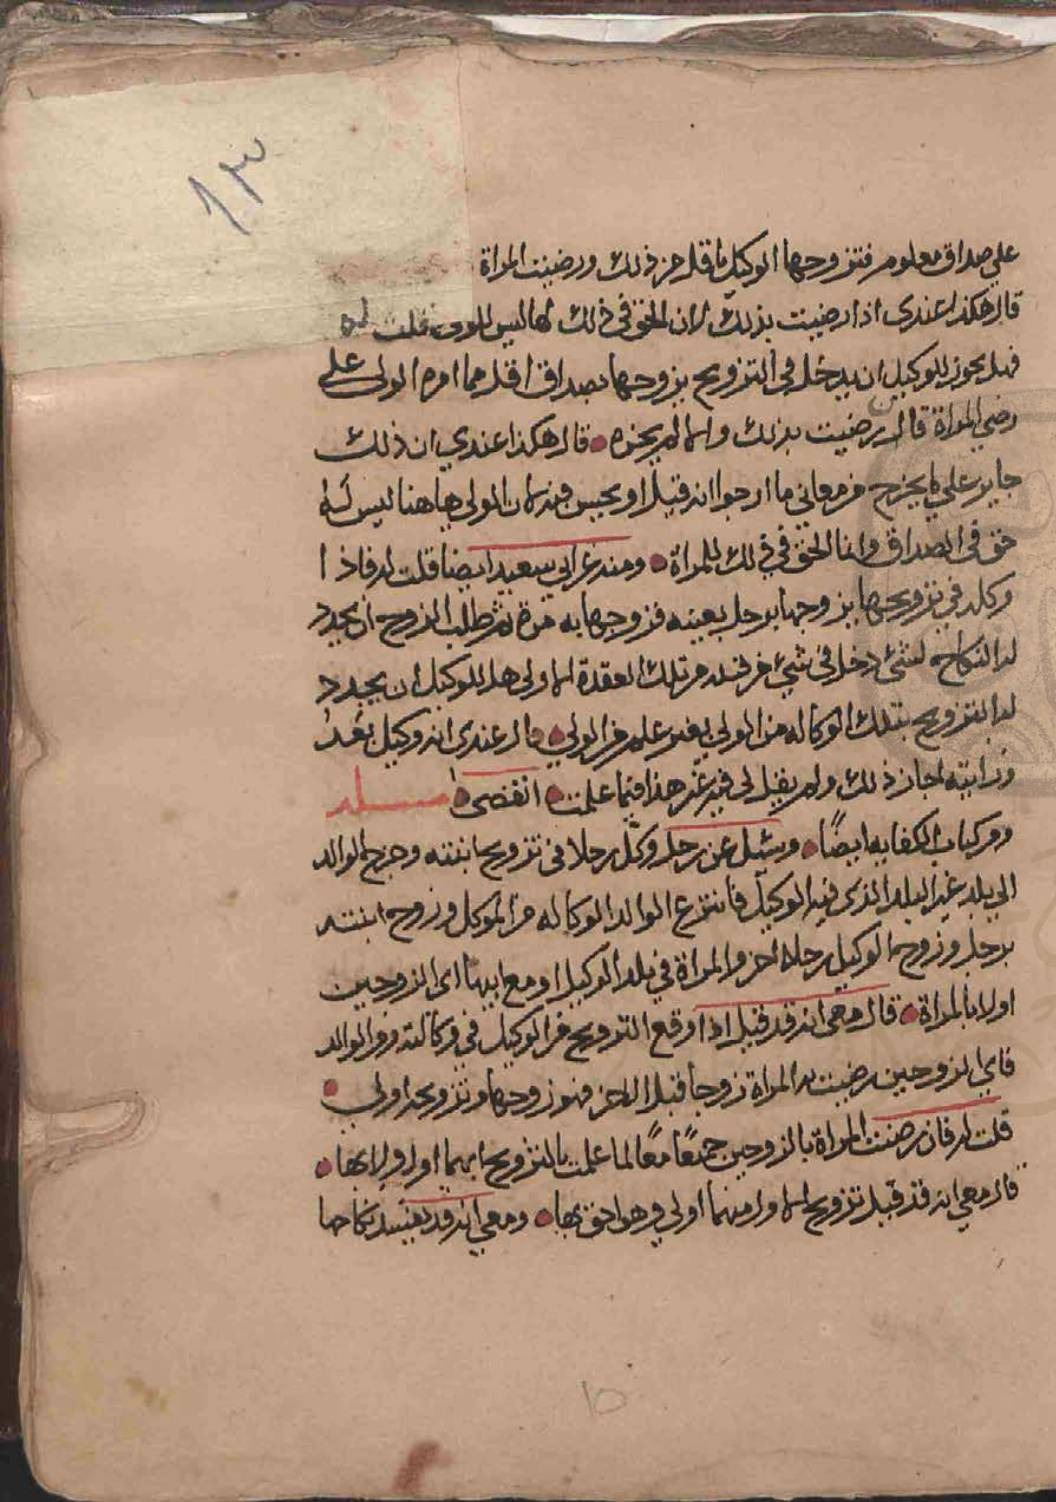 ١٣
علي صداق معلوم فتزوجها الوكيل باقل من ذلك ورضيت المراة
قال هكذا عندي اذا رضيت بذلك لان الحق في ذلك لها ليس للولي قلت له
فهل يجوز للوكيل ان يدخل في التزويج بزوجها بصداق اقل مما امره الولي علي
رضي المراة قال رضيت بذلك والا لم يجزه قال هكذا عندي ان ذلك
جايز علي ما يخرج من معاني ما ارجوا انه قيل او يحسن فيه لان المولي هاهنا ليس له
حق في الصداق وانما الحق في ذلك للمراة ومنه عن ابي سعيد ايضا قلت له فاذا
وكله في تزويجها بزوجها برجل بعينه فزوجها به مرة ثم طلب الزوج ان يجدد
له النكاح لشئ دخل في شئ من قبله من تلك العقدة الاولي هل للوكيل ان يجدد
له التزويج بتلك الوكاله من الولي بغير علم من الولي قال عندي انه وكيل بعد
ورايته اجاز ذلك ولم يقبل لي فيه غير هذا فيما علمت انقضي مسئله
ومن كتاب الكفايه ايضًا وسئل عن رجل وكّل رجلا في تزويج ابنته وخرج الوالد
الي بلد غير البلد الذي فيه الوكيل فانتزع الوالد الوكاله من الموكل وزوج ابنته
برجل وزوجها الوكيل رجلا اخر والمراة في بلد الوكيل او مع ابيها اي الزوجين
اولا بالمراة قال معي انه قد قيل اذا وقع التزويج من الوكيل في وكالته ومن الوالد
فاي الزوجين رضيت به المراة زوجا قبل الاخر فهو زوجها وتزويجه اولي
قلت له فان رضيت المراة بالزوجين جميعًا معًا لما علمت بالتزويج ايهما اولا ولا بها
قال معي انه قد قيل تزويج الاول منهما اولي وهو احق بها ومعي انه قد يفسد نكاحها